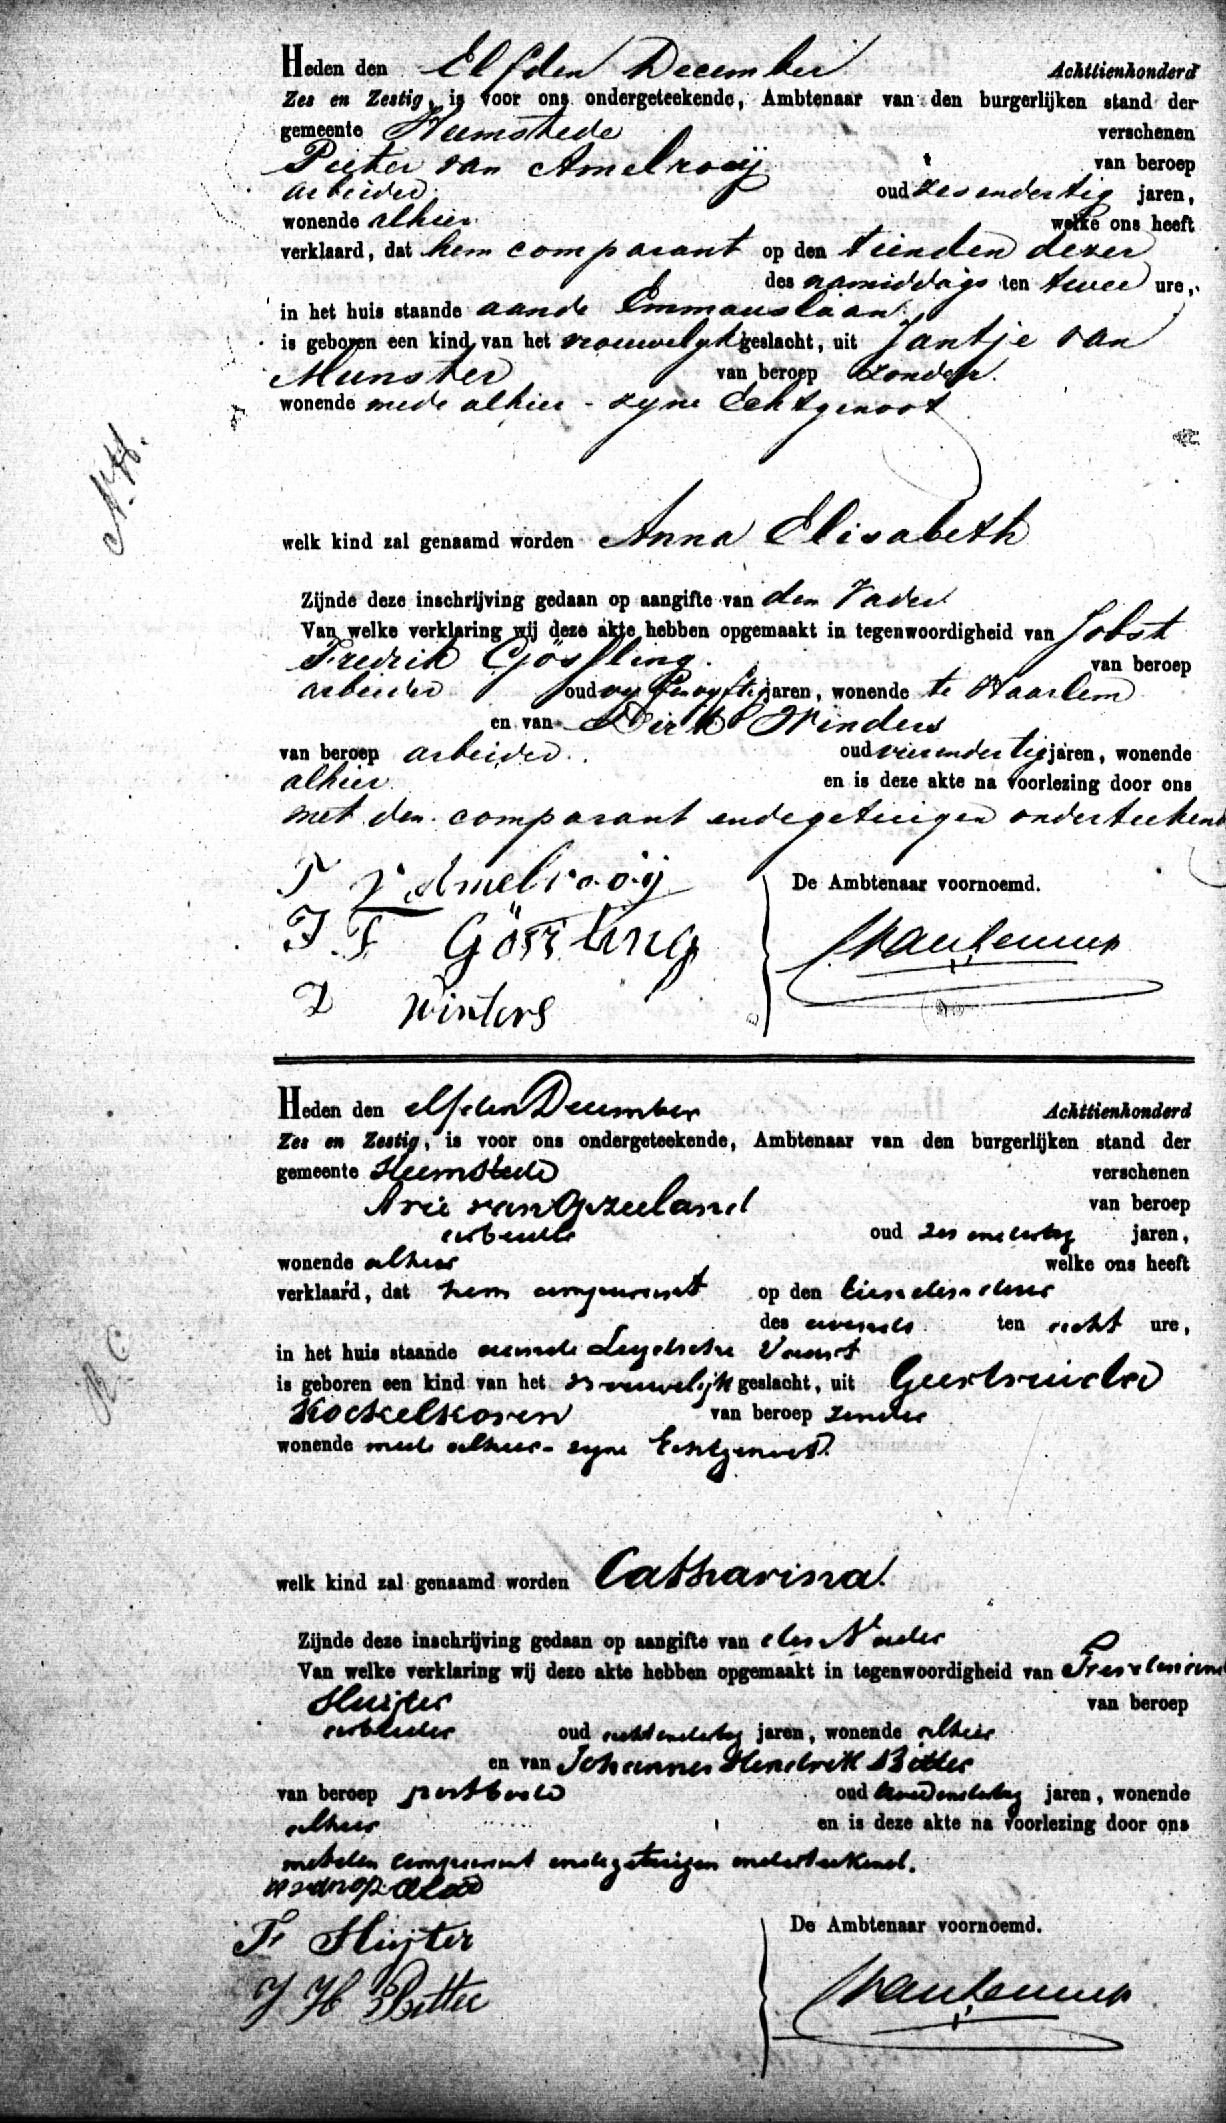 Heden den Elfden December Achttienhonderd
Zes en Zestig, is voor ons ondergeteekende, Ambtenaar van den burgerlijken stand der
gemeente Heemstede verschenen
Pieter van Amelrooij van beroep
arbeider oud zesendertig jaren,
wonende alhier welke ons heeft
verklaard, dat hem comparant op den tienden dezer
des namiddags ten twee ure,
in het huis staande aan de Emmauslaan
is geboren een kind van het vrouwelyk geslacht, uit Jantje van
Munster van beroep zonder.
wonende mede alhier - zyne Echtgenoot
N.H.
welk kind zal genaamd worden Anna Elisabeth
Zijnde deze inschrijving gedaan op aangifte van den Vader
Van welke verklaring wij deze akte hebben opgemaakt in tegenwoordigheid van Jobst
Fredrik Gössling. van beroep
arbeider oud vyfenvyftig jaren, wonende te Haarlem
en van Dirk Winders
van beroep arbeider oud vierendertig jaren, wonende
alhier en is deze akte na voorlezing door ons
met den comparant en de getuigen onderteekend
P v Amelrooij De Ambtenaar voornoemd.
J. F Gössling
D Winters
Heden den elfden December Achttienhonderd
Zes en Zestig, is voor ons ondergeteekende, Ambtenaar van den burgerlijken stand der
gemeente Heemstede verschenen
Arie van Opzeeland van beroep
arbeider oud zesendertig jaren,
wonende alhier welke ons heeft
verklaard, dat hem comparant op den tienden dezer
des avonds ten acht ure,
in het huis staande aan de Leydsche Vaart
is geboren een kind van het vrouwelijk geslacht, uit Geertruida
Kockelkoren van beroep zonder
wonende mede alhier - zyne Echtgenoot.
R C
welk kind zal genaamd worden Catharina.
Zijnde deze inschrijving gedaan op aangifte van den Vader
Van welke verklaring wij deze akte hebben opgemaakt in tegenwoordigheid van
Huijter van beroep
arbeider oud achtendertig jaren, wonende alhier
en van Johannes Hendrik Bitter
van beroep postbode oud tweeendertig jaren, wonende
alhier en is deze akte na voorlezing door ons
met den comparant en de getuigen onderteekend.
F Huijter De Ambtenaar voornoemd.
J H Bitter